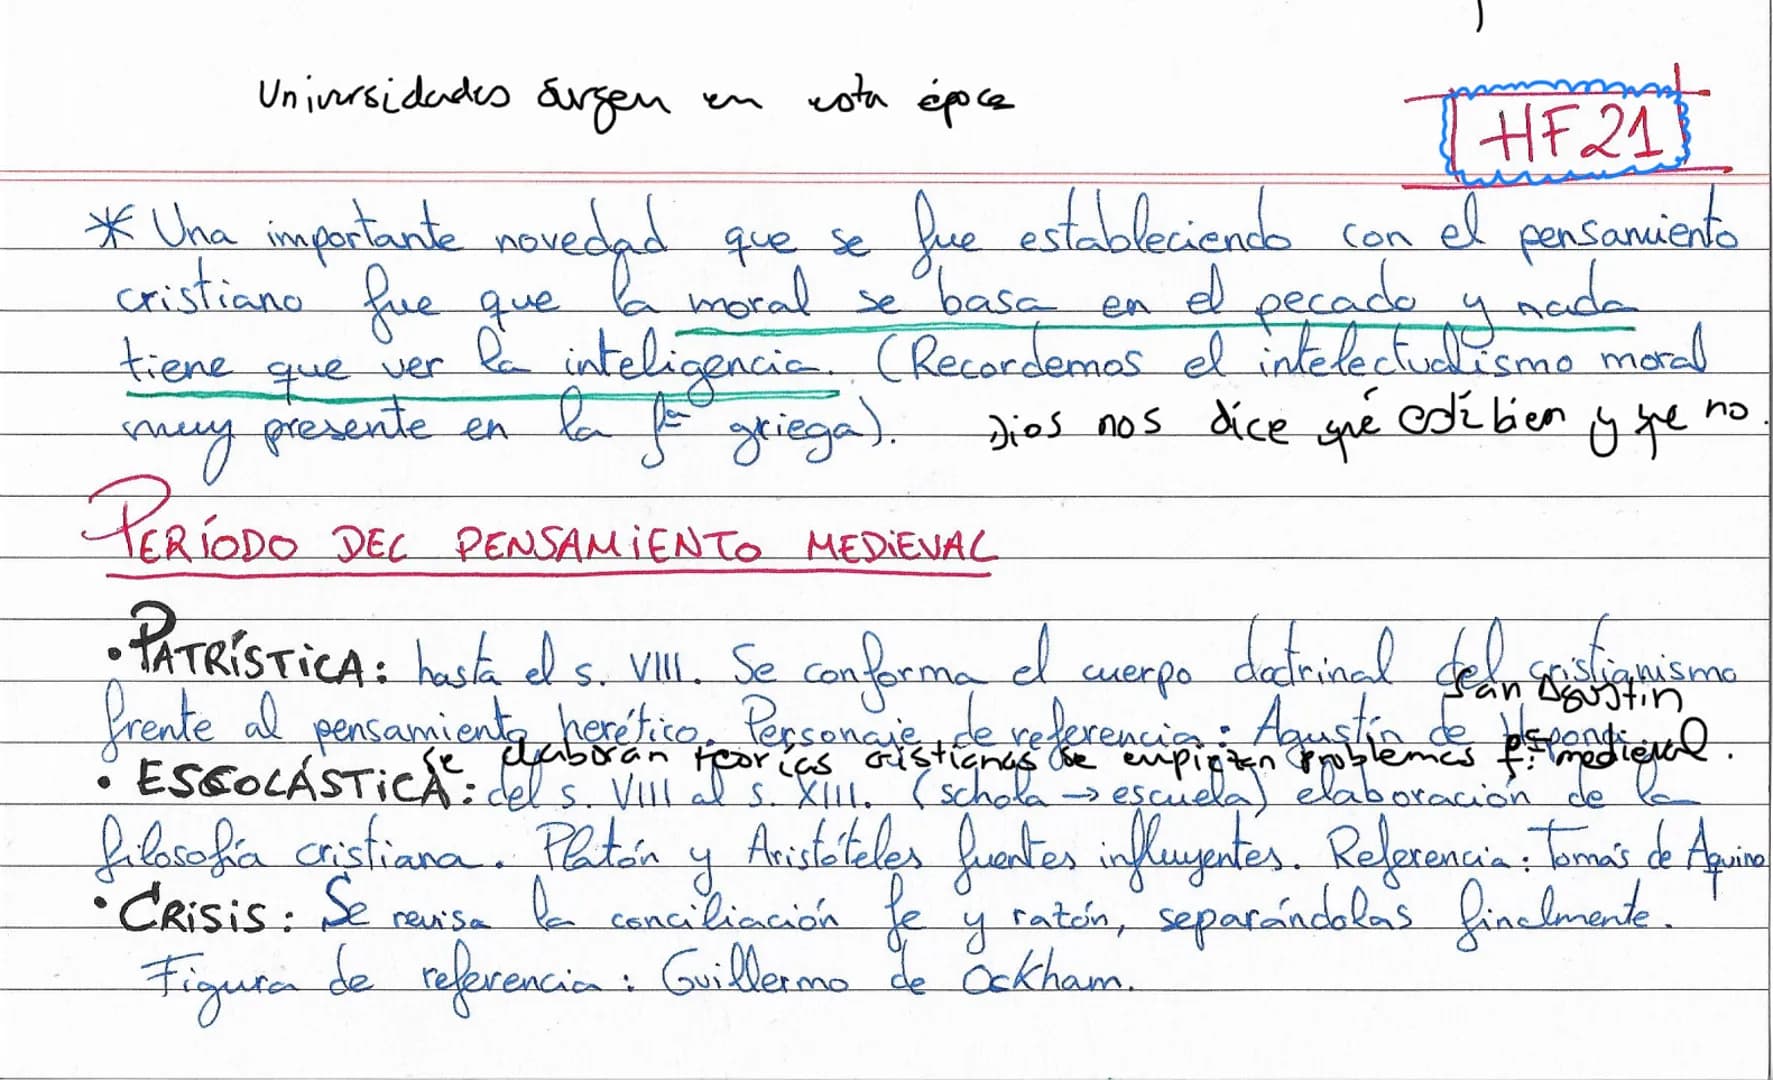 Universidades surgen en esta época
HF21
* Una importante novedad que se fue estableciendo con el pensamiento
cristiano fue que la moral se basa en el pecado y nada
tiene que ver la inteligencia. (Recordemos el intelectualismo moral
muy presente en la fª griega). Dios nos dice qué está bien y que no.
PERÍODO DEL PENSAMIENTO MEDIEVAL
• PATRÍSTICA: hasta el s. VIII. Se conforma el cuerpo doctrinal del cristianismo
San Agustín
frente al pensamiento herético. Personaje de referencia: Agustín de
se elaboran teorías cristianas se empiezan problemas medieval.
• ESCOLÁSTICA: del s. VIII al s. XIII. (schola → escuela) elaboración de la
filosofía cristiana. Platón y Aristóteles fuentes influyentes. Referencia: Tomás de Aquino
• CRISIS: Se revisa la conciliación fe y razón, separándolas finalmente.
Figura de referencia: Guillermo de Ockham.